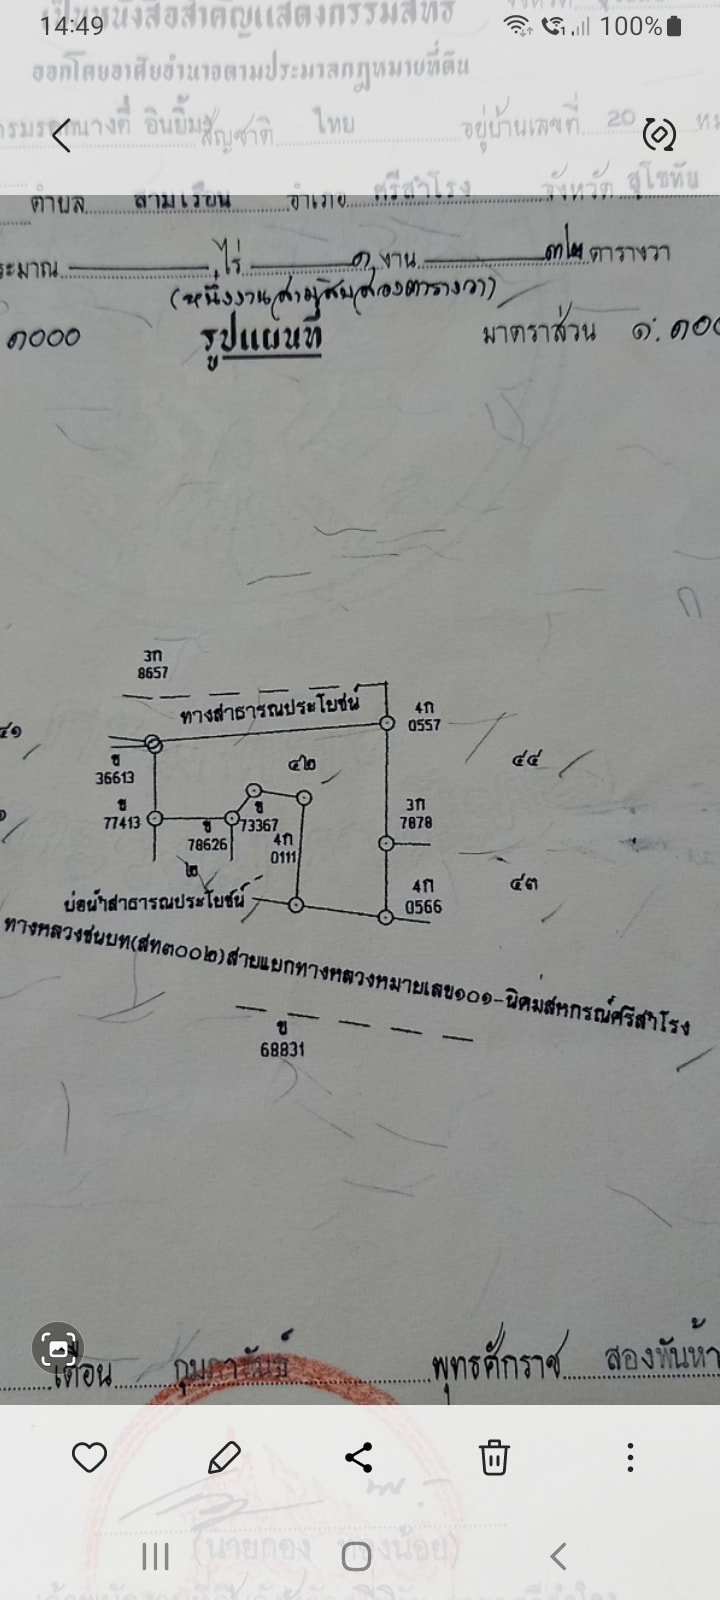 เป็นหนังสือสำคัญแสดงกรรมสิทธิ์
14:49
100%
ออกโดยอาศัยอำนาจตามประมวลกฎหมายที่ดิน
อินยิ้ม สัญชาติ ไทย อยู่บ้านเลขที่ 20
ตำบล สามเรือน อำเภอ ศรีสำโรง จังหวัด สุโขทัย
ไร่ ๑ งาน ๓๒ ตารางวา
(หนึ่งงานสามสิบสองตารางวา)
๑๐๐๐ รูปแผนที่ มาตราส่วน ๑:
3ก
8657
ทางสาธารณประโยชน์
4ก
0557
๔๑
ข
36613
๔๒
๔๔
ข
77413
ข
78626
ข
73367
4ก
0111
3ก
7878
๒
4ก
0566
๔๓
บ่อน้ำสาธารณประโยชน์
ทางหลวงชนบท(สท๓๐๐๒)สายแยกทางหลวงหมายเลข๑๐๑-นิคมสหกรณ์ศรีสำโรง
ข
68831
เดือน กุมภาพันธ์ พุทธศักราช สองพันห้า
(นายทอง ทองน้อย)